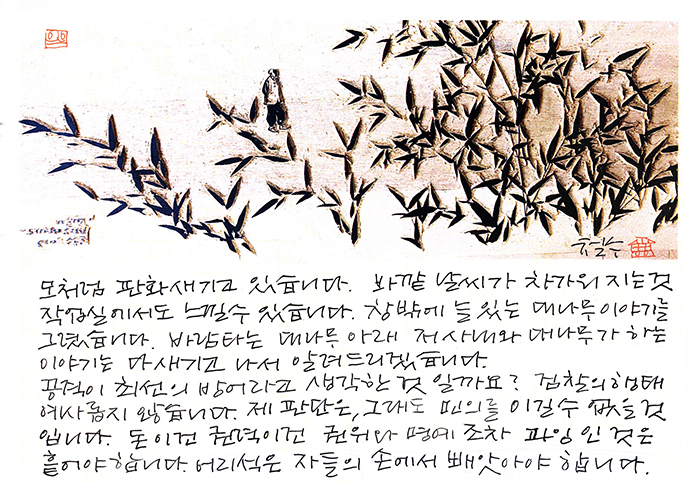 모처럼 판화새기고 있습니다. 바깥 날씨가 차가워 지는것
작업실에서도 느낄수 있습니다. 창밖에 늘 있는 대나무이야기를
그렸습니다. 바람타는 대나무 아래 저 사내와 대나무가 하는
이야기는 다새기고 나서 알려드리겠습니다.
공격이 최선의 방어라고 생각한 것 일까요? 검찰의 행태
예사롭지 않습니다. 제 판단은, 그래도 민의를 이길수 없는 것
입니다. 돈이건 권력이건 권위와 명예 조차 과잉 인 것은
흩어야합니다. 어리석은 자들의 손에서 빼앗아야 합니다.
철수